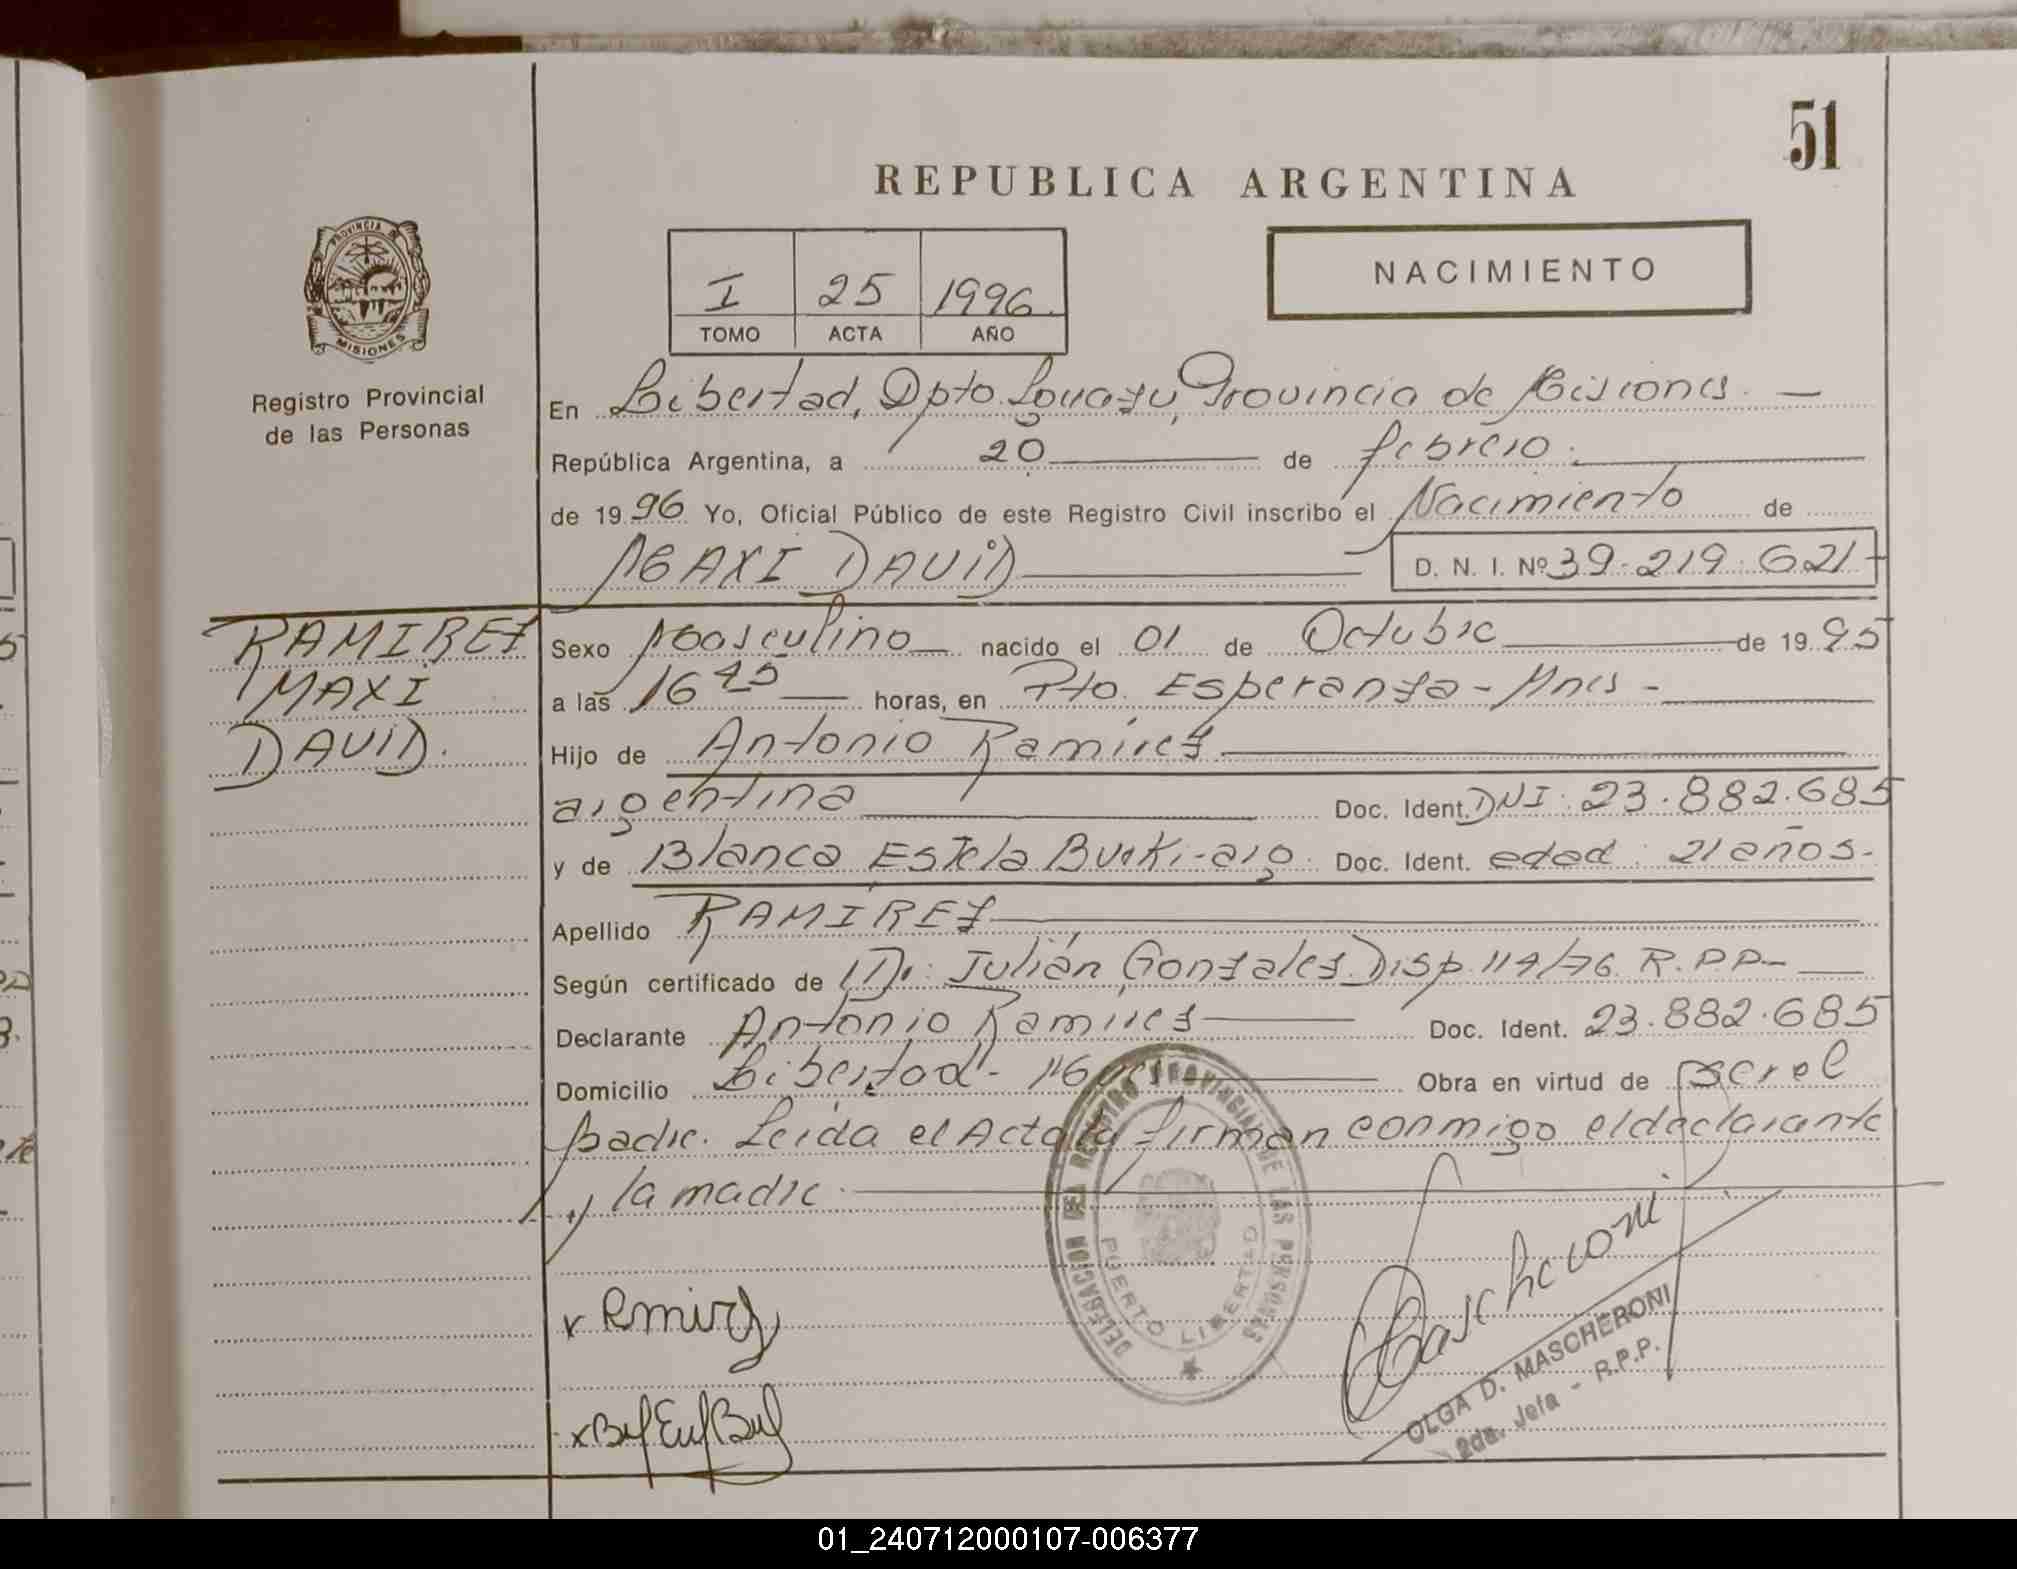 51
REPUBLICA ARGENTINA
NACIMIENTO
I 25 1996
TOMO ACTA AÑO
PROVINCIA DE
MISIONES
Registro Provincial
de las Personas
En Libertad, Dpto. Iguazu, Provincia de Misiones. —
República Argentina, a 20 de febrero.
de 1996 Yo, Oficial Público de este Registro Civil inscribo el Nacimiento de
MAXI DAVID D. N. I. Nº 39.219.621
RAMIREZ
MAXI
DAVID.
Sexo Masculino nacido el 01 de Octubre de 1995
a las 16 45 horas, en Pto. Esperanza - Mnes -
Hijo de Antonio Ramirez
argentina Doc. Ident. DNI: 23.882.685
y de Blanca Estela Burki - arg. Doc. Ident. edad: 21 años.-
Apellido RAMIREZ
Según certificado de Dr. Julián Gonzalez Disp. 114/76 R.P.P.-
Declarante Antonio Ramirez Doc. Ident. 23.882.685
Domicilio Libertad - Obra en virtud de ser el
padre. Leida el Acta la firman conmigo el declarante
y la madre.
DELEGACION DEL REGISTRO PROVINCIAL DE LAS PERSONAS
PUERTO LIBERTAD
x Rmirez
Mascheroni
OLGA D. MASCHERONI
2da. Jefa - R.P.P.
01_240712000107-006377